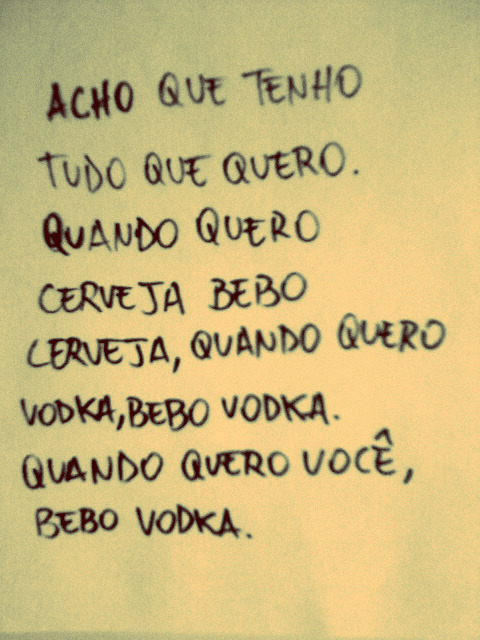 ACHO QUE TENHO
TUDO QUE QUERO.
QUANDO QUERO
CERVEJA BEBO
CERVEJA, QUANDO QUERO
VODKA, BEBO VODKA.
QUANDO QUERO VOCÊ,
BEBO VODKA.